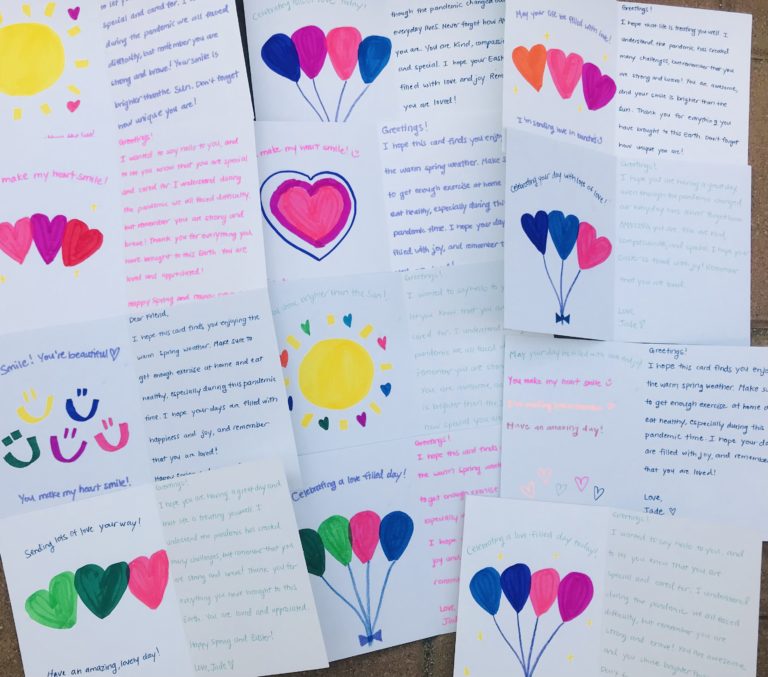 special and cared for. I
during the pandemic we all faced
difficulty, but remember you are
strong and brave! Your smile is
brighter than the Sun. Don't forget
how unique you are!
Celebrating today!
though the pandemic changed our
everyday lives. Never forget how
you are. You are kind, compass
and special. I hope your East
filled with love and joy. Rem
you are loved!
May your life be filled with love!
I'm sending love in bunches
Greetings!
I hope that life is treating you well. I
understand the pandemic has created
many challenges, but remember that you
are strong and loved! You are awesome,
and your smile is brighter than the
Sun. Thank you for everything you
have brought to this Earth. Don't forget
how unique you are!
make my heart smile!
Greetings!
I wanted to say hello to you, and
to let you know that you are special
and cared for. I understand during
the pandemic we all faced difficulty,
but remember you are strong and
brave! Thank you for everything you
have brought to this Earth. You are
loved and appreciated!
Happy Spring and
make my heart smile!
Greetings!
I hope this card finds you enjoy
the warm spring weather. Make s
to get enough exercise at home
eat healthy, especially during this
pandemic time. I hope your day
filled with joy, and remember t
Celebrating your day with lots of love!
Greetings!
I hope you are having a great day
even though the pandemic changed
our everyday lives. Never forget how
you are. You are kind,
compassionate, and special. I hope your
Easter is filled with joy! Remember
that you are loved.
Love,
Jade
Smile! You're beautiful
You make my heart smile!
Dear Friend,
I hope this card finds you enjoying the
warm spring weather. Make sure to
get enough exercise at home and eat
healthy, especially during this pandemic
time. I hope your days are filled with
happiness and joy, and remember
that you are loved!
brighter than the Sun!
Greetings!
I wanted to say hello to
let you know that you are
cared for. I understand
pandemic we all faced
remember you are strong
You are awesome,
is brighter than the Sun
how special you are
May your day be filled with
You make my heart smile
Have an amazing day!
Greetings!
I hope this card finds you enjoy
the warm spring weather. Make su
to get enough exercise at home a
eat healthy, especially during this
pandemic time. I hope your da
are filled with joy, and remember
that you are loved!
Love,
Jade
Sending lots of love your way!
Have an amazing, lovely day!
Greetings!
I hope you are having a great day and
that life is treating you well. I
understand the pandemic has created
many challenges, but remember that you
are strong and brave! Thank you for
everything you have brought to this
Earth. You are loved and appreciated.
Happy Spring and Easter!
Love, Jade
Celebrating a love filled day!
Greetings!
I hope this card finds
the warm spring weath
to get enough exercise
especially
I hope
joy and
remem
Love,
Jade
Celebrating a love filled day today!
Greetings!
I wanted to say hello to you, and
to let you know that you are
special and cared for. I understand
during the pandemic we all faced
difficulty, but remember you are
strong and brave! You are awesome,
and you shine brighter than